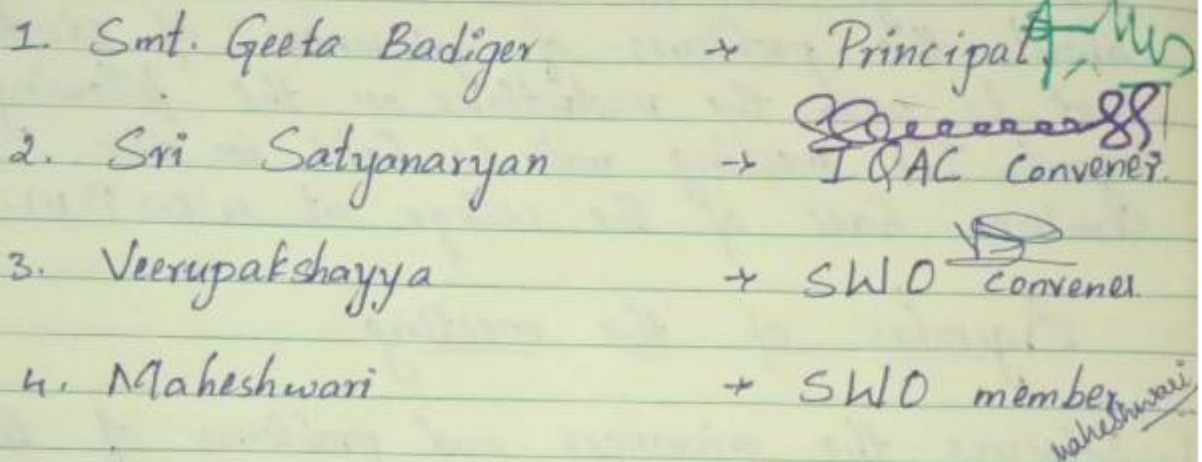 1. Smt. Geeta Badiger → Principal
2. Sri Satyanaryan → IQAC Convener.
3. Veerupakshayya → SWO Convener
4. Maheshwari → SWO member
Maheshwari